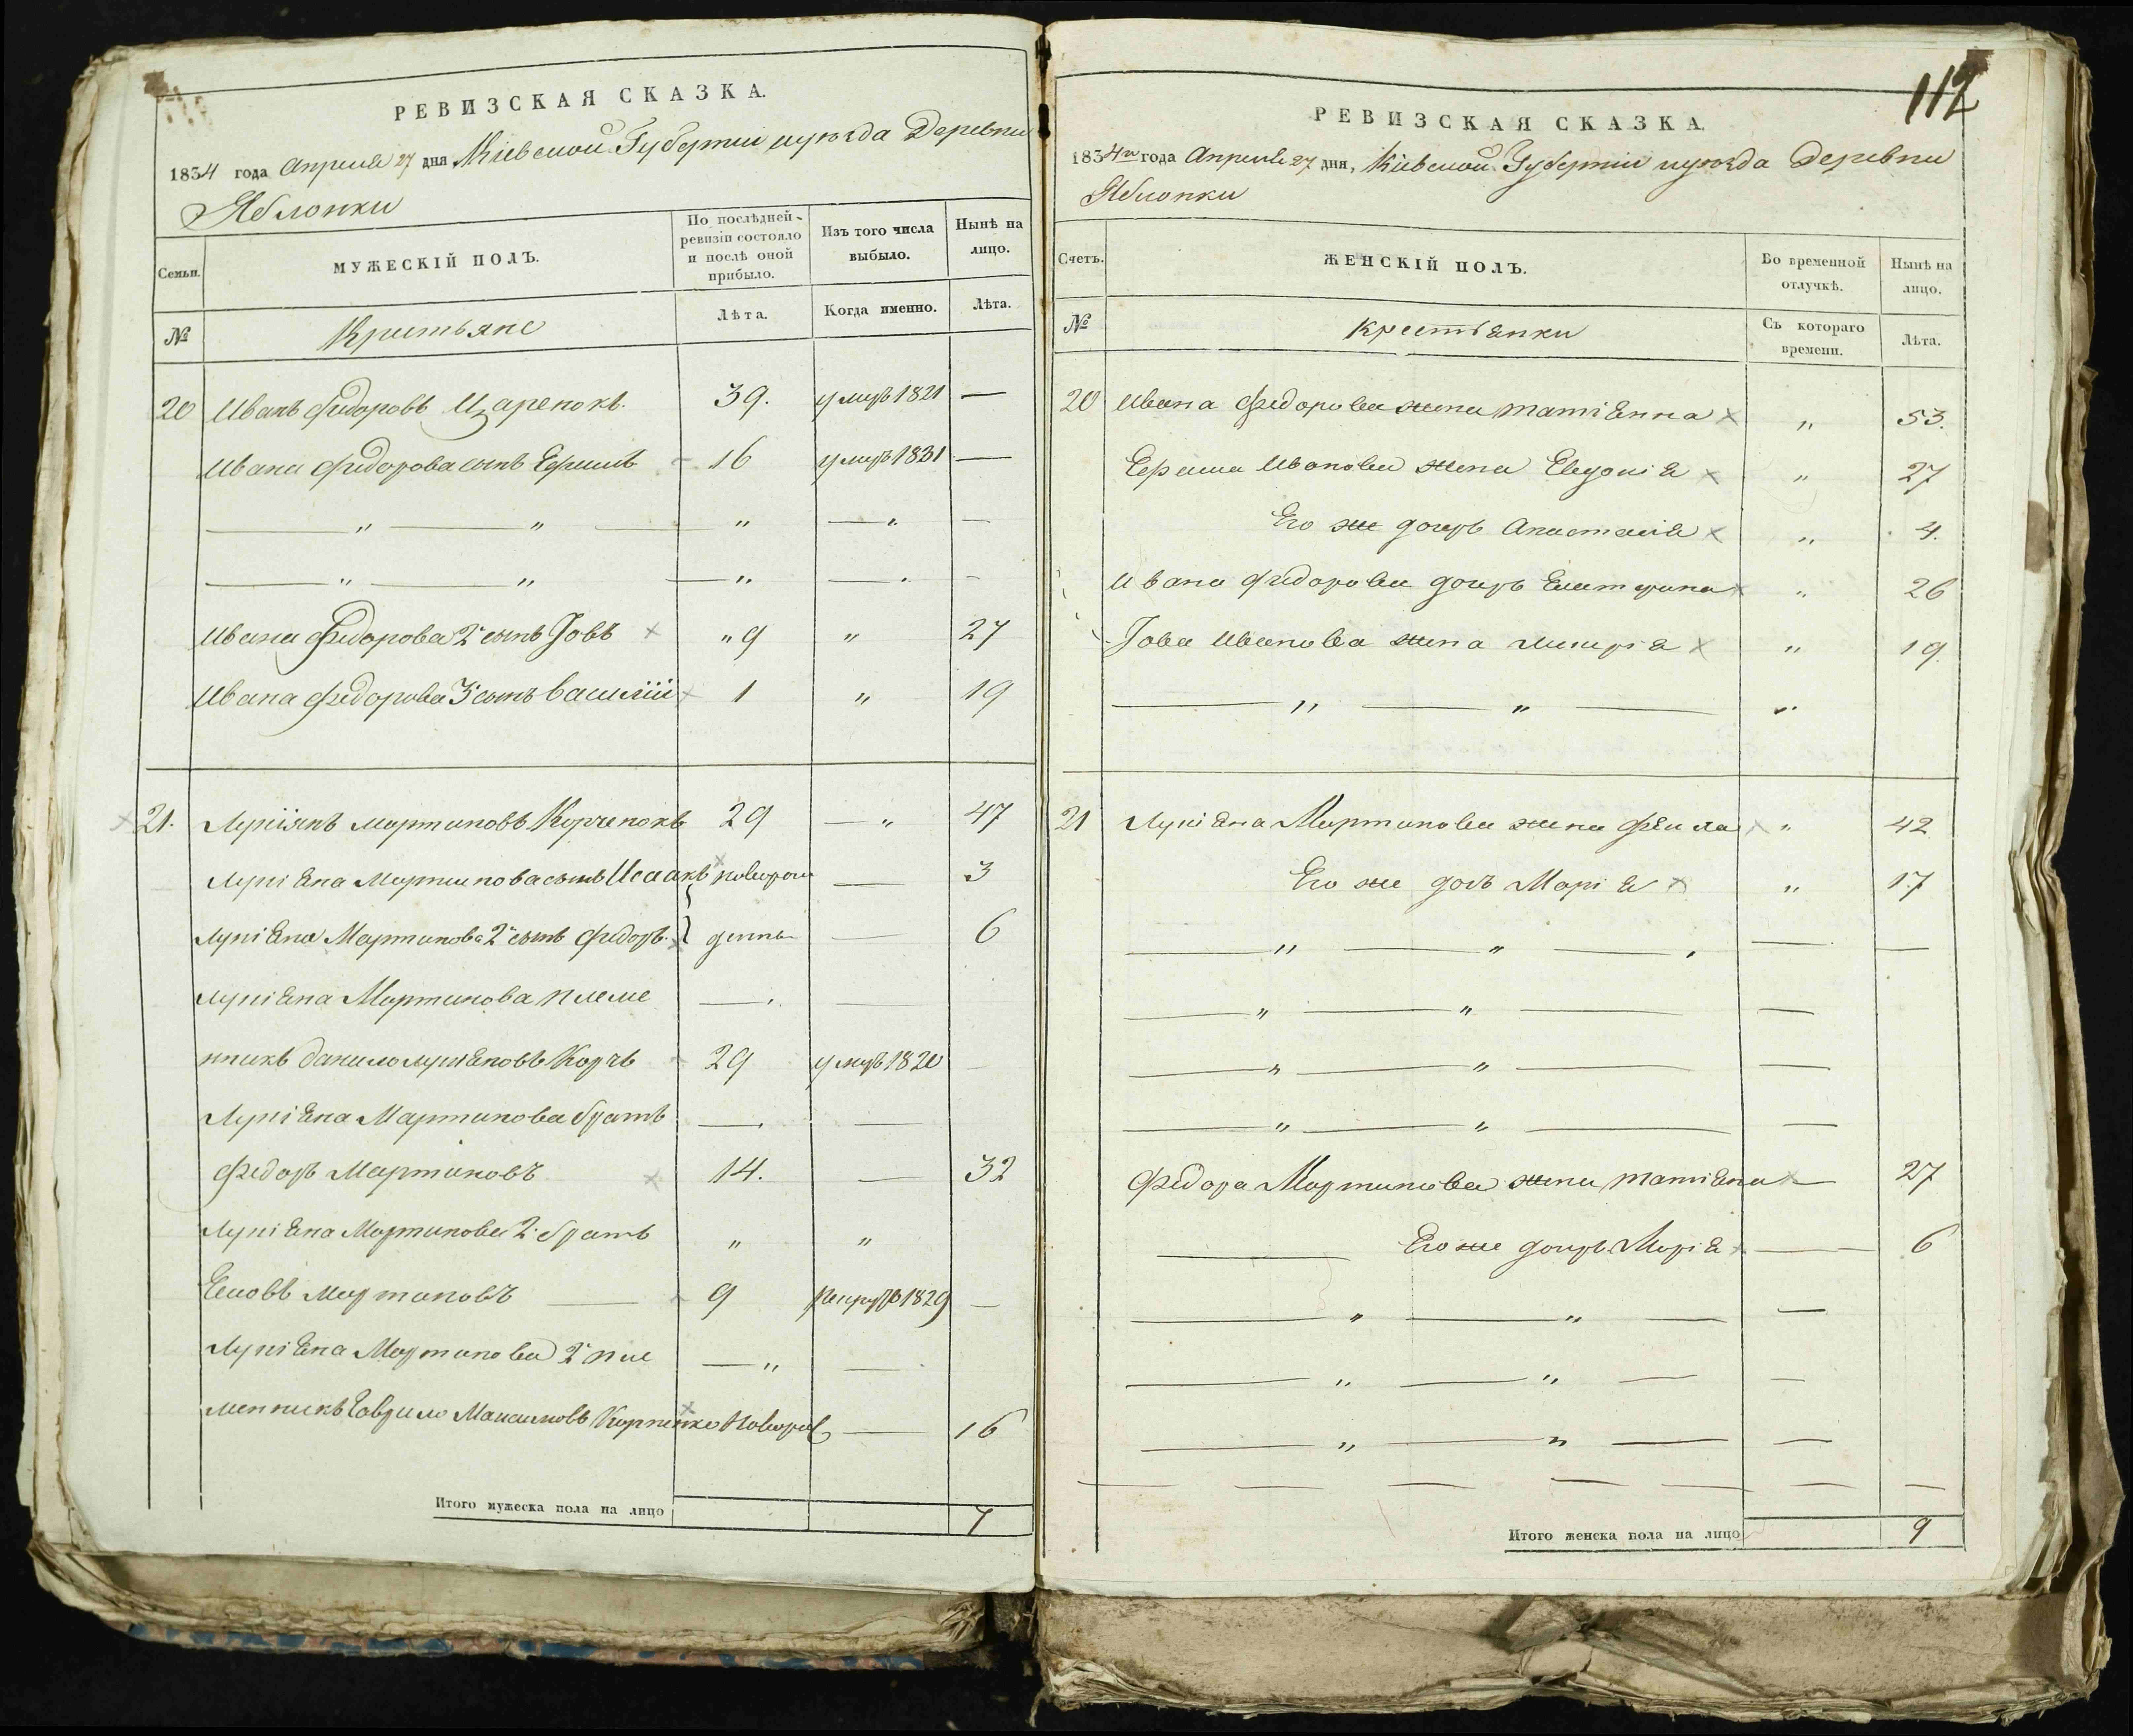 РЕВИЗСКАЯ СКАЗКА.
1834 года Апреля 27 дня Киевской Губернии и уезда Деревни
Яблонки
Семьи.
МУЖЕСКІЙ ПОЛЪ.
По послѣдней
ревизіи состояло
и послѣ оной
прибыло.
Изъ того числа
выбыло.
Нынѣ на
лицо.
№
Крестьяне
Лѣта.
Когда именно.
Лѣта.
20 Иванъ Федоровъ 39. умеръ 1821 —
Ивана Федорова сынъ Ефимъ 16 умеръ 1831 —
— „ — „ — „ — „ —
— „ — „ — „ — „ —
Ивана Федорова 2й сынъ Іовъ „ 9 „ 27
Ивана Федорова 3й сынъ Василій 1 „ 19
21. Лукіянъ Мартиновъ Корченокъ 29 — „ 47
Лукіяна Мартинова сынъ Исаакъ новорож — 3
Лукіяна Мартинова 2й сынъ Федоръ денны — 6
Лукіяна Мартинова племе — —
нникъ Данило Корчъ 29 умеръ 1820 —
Лукіяна Мартинова братъ — —
Федоръ Мартиновъ 14. — 32
Лукіяна Мартинова 2й братъ „ „
Мартиновъ — 9 рекрутъ 1829 —
Лукіяна Мартинова 2й пле — „ —
менникъ Гаврило Максимовъ новорож — 16
Итого мужеска пола на лицо 7
112
РЕВИЗСКАЯ СКАЗКА.
1834го года Апреля 27 дня, Киевской Губернии и уезда Деревни
Яблонки
Счетъ.
ЖЕНСКІЙ ПОЛЪ.
Во временной
отлучкѣ.
Нынѣ на
лицо.
№
Крестьянки
Съ котораго
времени.
Лѣта.
20 Ивана Федорова жена Татіянна „ 53.
Ефима Иванова жена Евдокія „ 27
Его же дочерь Анастасія „ 4.
Ивана Федорова дочерь Екатерина „ 26
Іова Иванова жена „ 19.
— „ — „ — „
21 Лукіяна Мартинова жена Фекла „ 42
Его же дочь Марія „ 17
— „ — „ — — —
— „ — „ — —
— „ — „ — —
— „ — „ — —
Федора Мартинова жена Татіяна — 27
— Его же дочерь Марія — 6
— „ — „ — —
— „ — „ — —
— „ — „ — —
— — — — — — — —
Итого женска пола на лицо 9